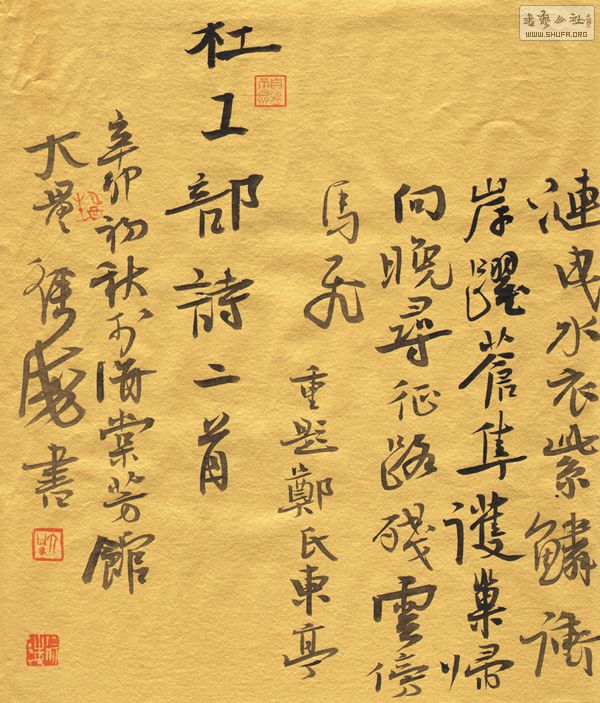 漣曳水衣紫鱗衝
岸躍蒼隼護巢歸
向晚尋征路殘雲傍
馬飛
重題鄭氏東亭
杜工部詩二首
辛卯初秋於海棠芳館
大 書
書藝公社
WWW.SHUFA.ORG